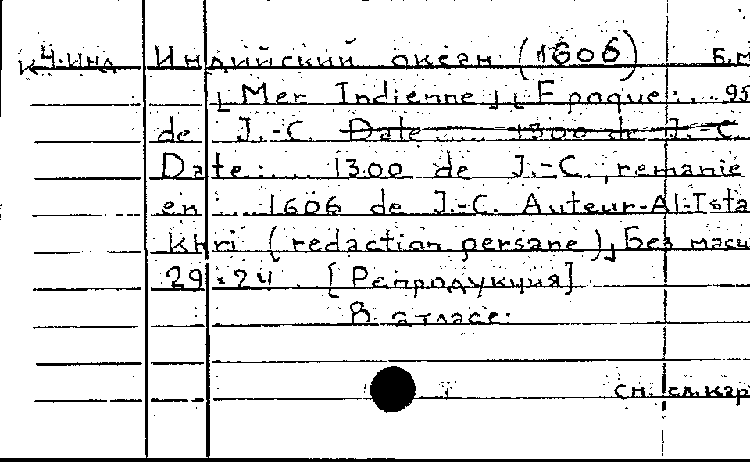 к4.Инд Индийский океан (1606) Б.М
[Mer Indienne] [Epoque: .. 95
de J.-C. Date .... 1300 de J.-C.
Date: ... 1300 de J.-C., remanie
en .... 1606 de J.-C. Auteur-Al-Ista
khri (redaction persane), Без масш
29×24 . [Репродукция]
В атласе:
сн. см.кар